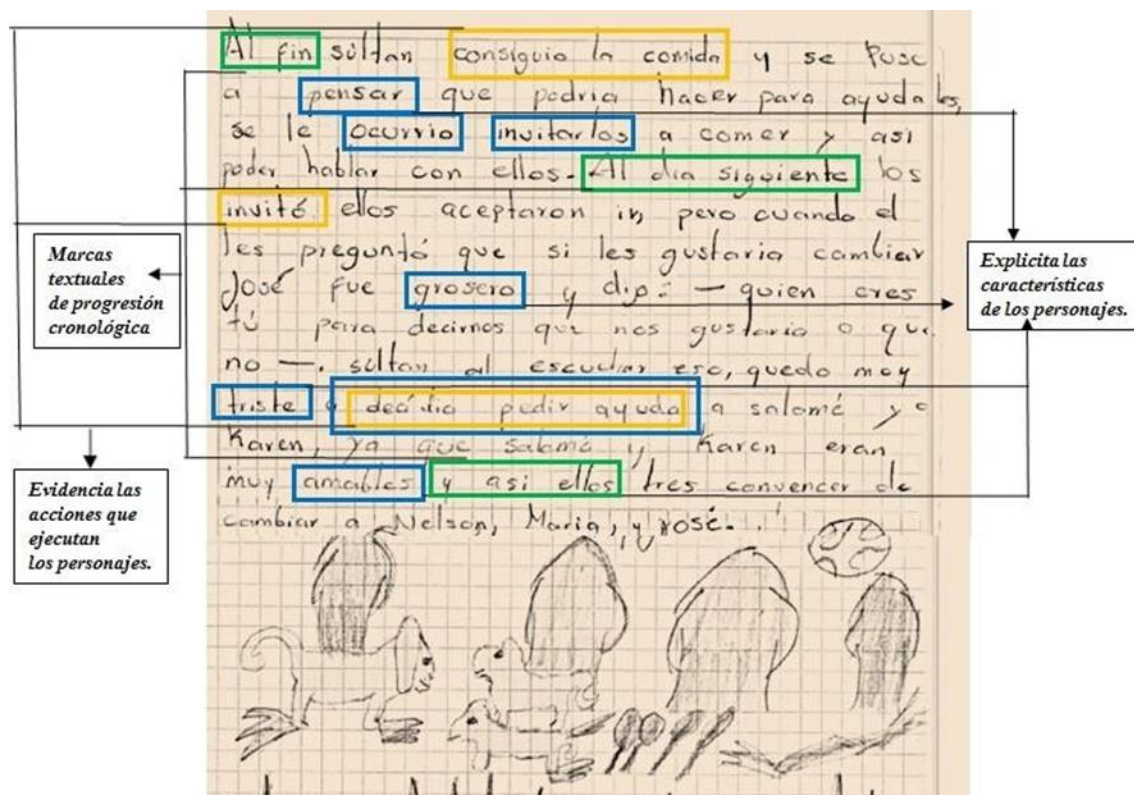 Al fin súltan consiguio la comida y se Puso
a pensar que podria hacer para ayudales,
se le ocurrio invitarlos a comer y asi
poder hablar con ellos. Al dia siguiente los
invitó, ellos aceptaron ir, pero cuando el
les preguntó que si les gustaria cambiar
José fue grosero y dijo: — quien eres
tú para decirnos que nos gustaria o que
no —. súltan al escuchar eso, quedo muy
triste y decidio pedir ayuda a salomé y a
Karen, ya que salomé y Karen eran
muy amables y asi ellos tres convencer de
cambiar a Nelson, Maria, y José.
Marcas
textuales
de progresión
cronológica
Explicita las
características
de los personajes.
Evidencia las
acciones que
ejecutan
los personajes.